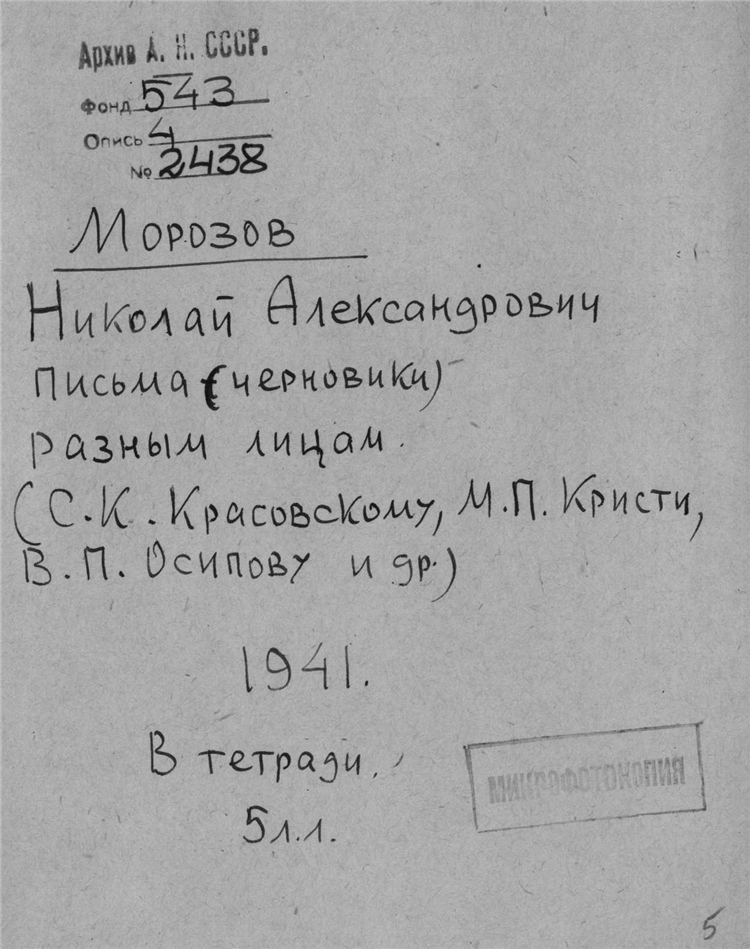 Архив А. Н. СССР.
Фонд 543
Опись 4
№ 2438
Морозов
Николай Александрович
письма (черновики)
разным лицам.
(С.К. Красовскому, М.П. Кристи,
В.П. Осипову и др.)
1941.
В тетради.
5 л.л.
МИКРОФОТОКОПИЯ
5